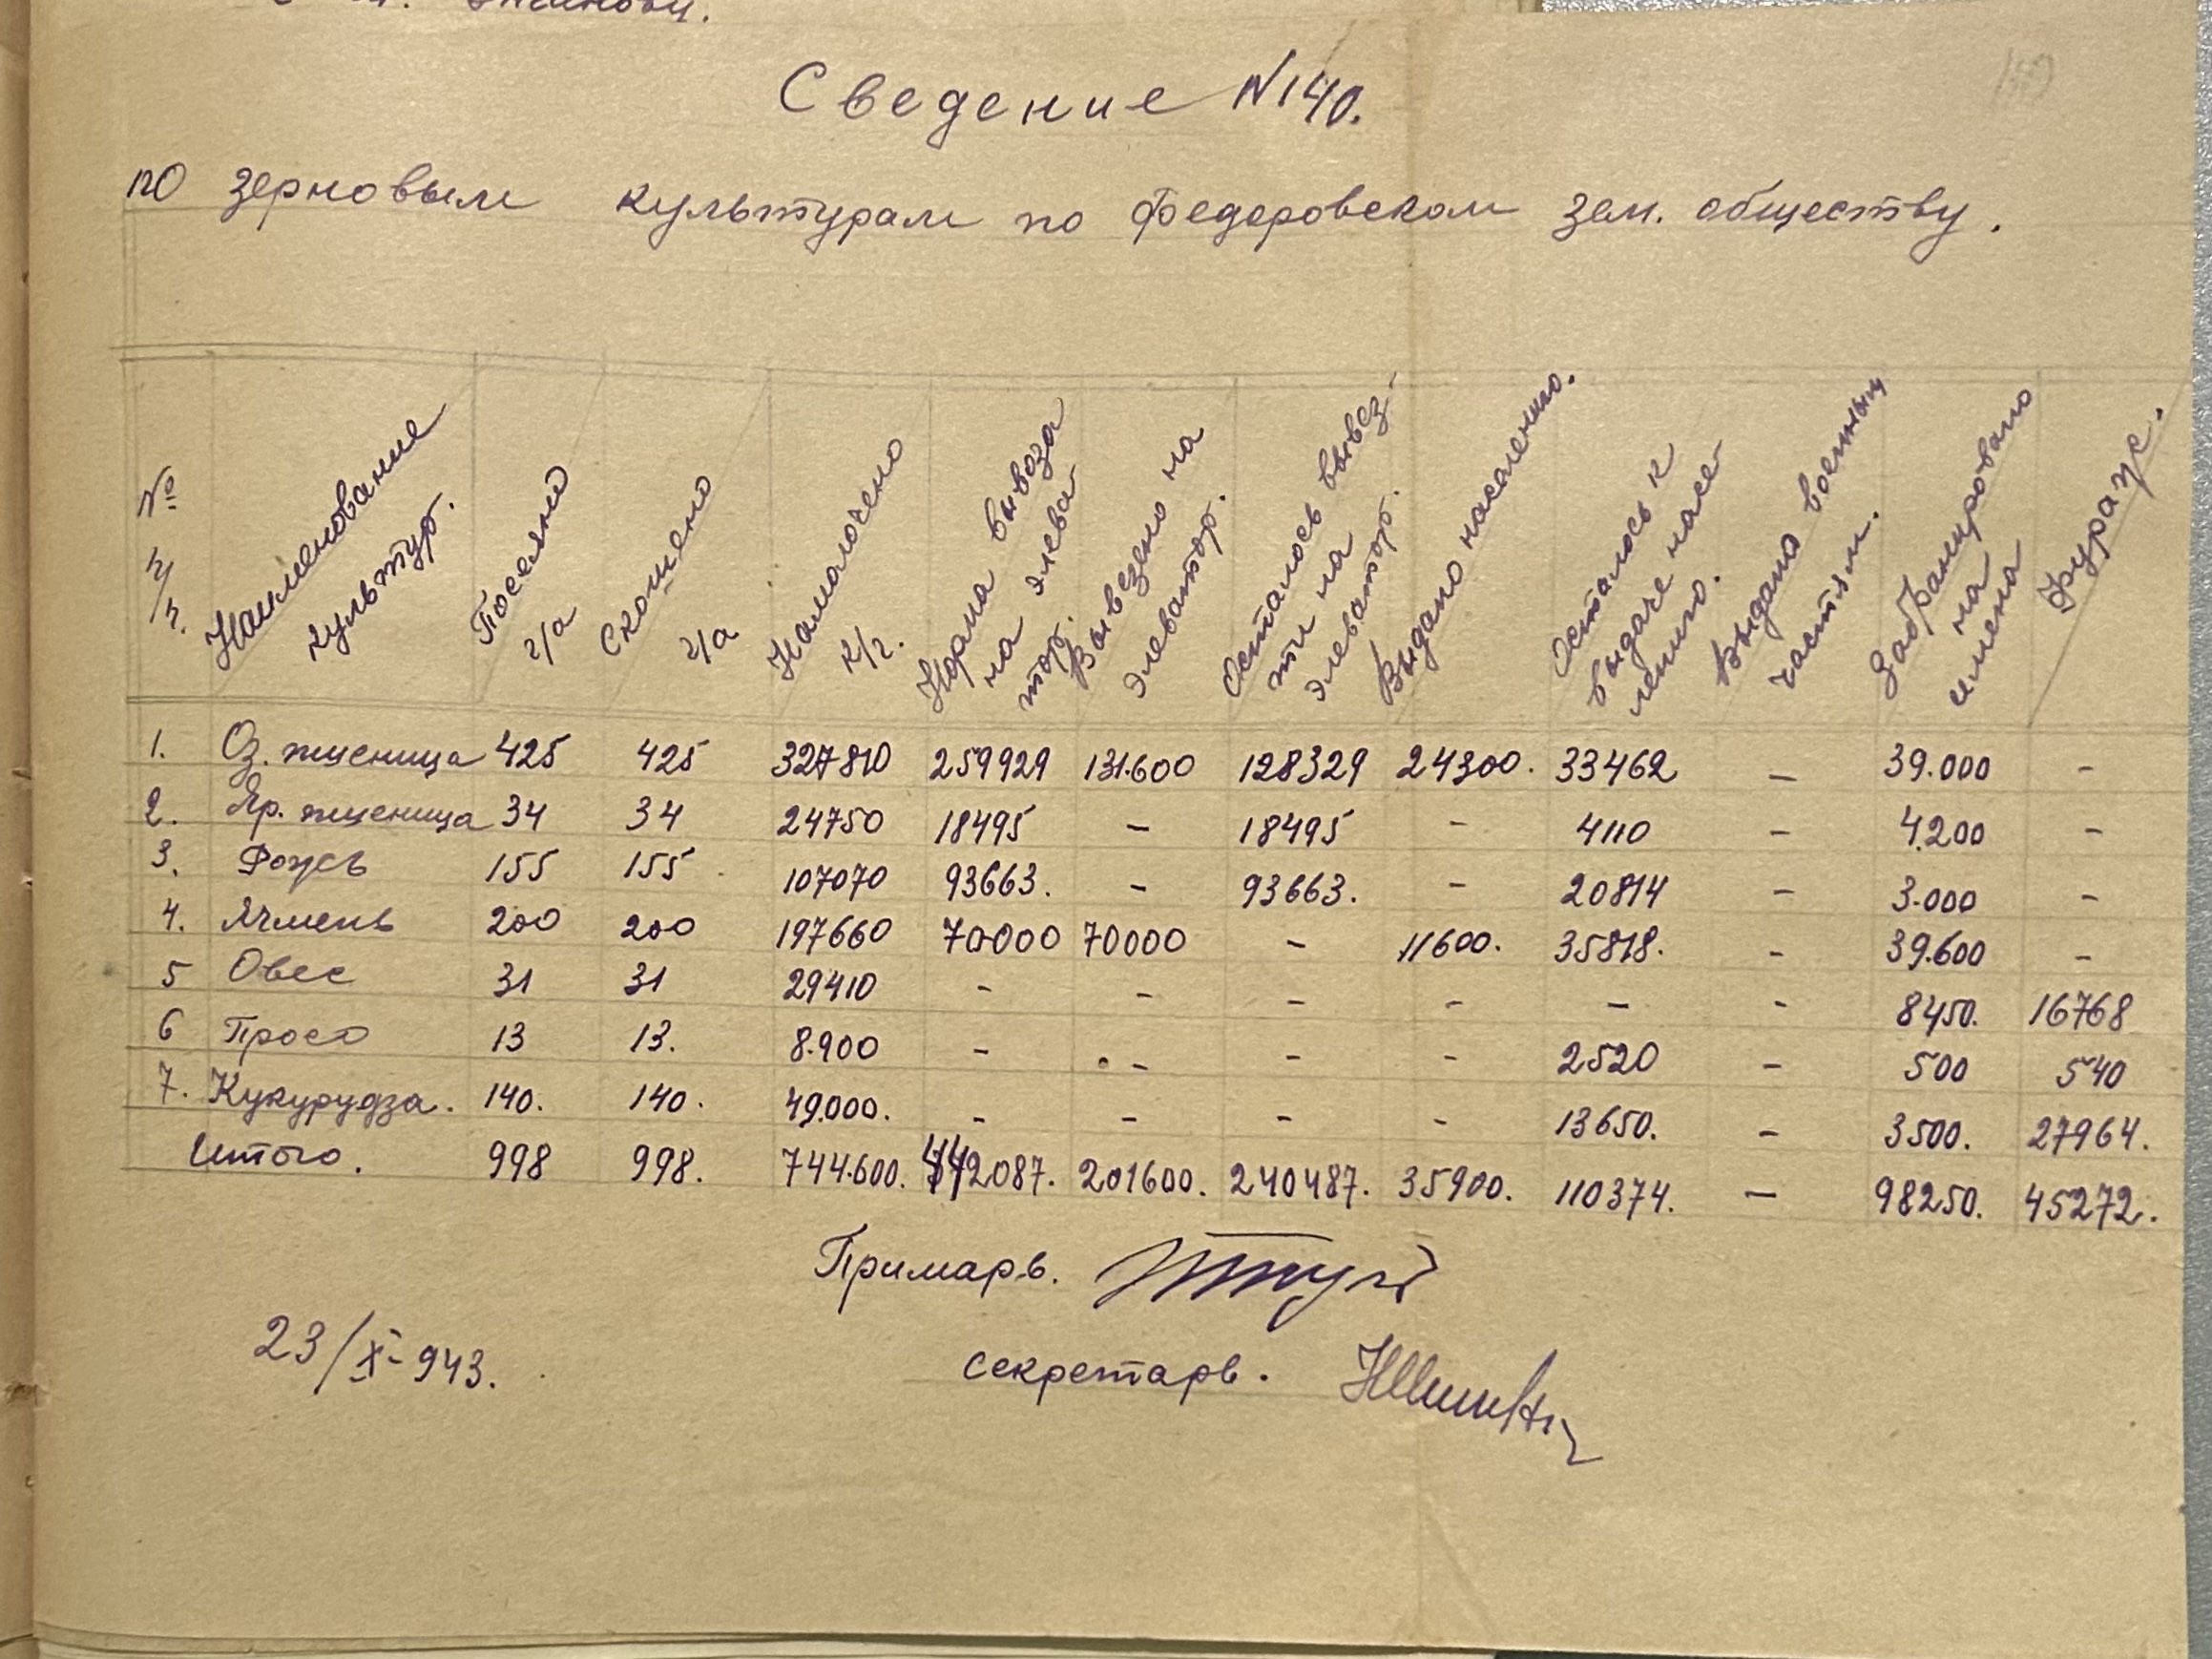 Сведение N140.
по зерновым культурам по Федоровском зем. обществу.
№ п/п. Наименование культур. Посеяно г/а Скошено г/а Намолочено к/г. Норма вывоза на элеватор. Вывезено на элеватор. Осталось вывезти на элеватор. Выдано населению. Осталось к выдаче населению. Выдано военным частям. Забранировано на имена Фураж.
1. Оз. пшеница 425 425 327810 259929 131.600 128329 24300. 33462 – 39.000 –
2. Яр. пшеница 34 34 24750 18495 – 18495 – 4110 – 4.200 –
3. Рожь 155 155 107070 93663. – 93663. – 20814 – 3.000 –
4. Ячмень 200 200 197660 70000 70000 – 11600. 35818. – 39.600 –
5 Овес 31 31 29410 – – – – – – 8450. 16768
6 Просо 13 13. 8.900 – – – – 2520 – 500 540
7. Кукурудза. 140. 140. 49.000. – – – – 13650. – 3500. 27964.
Итого. 998 998. 744.600. 442087. 201600. 240487. 35900. 110374. – 98250. 45272.
Примарь.
23/X-943.
секретарь.